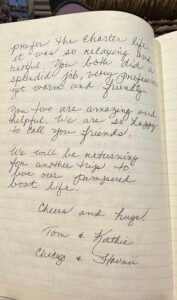 prefer the charter life.
it was so relaxing and
restful. You both did a
splendid job, very profession
warm and friendly.
You two are amazing and
helpful. We are so happy
to call you friends.
We will be returning
for another trip to
live our pampered
boat life.
Cheers and hugs,
Tom & Kathie
Chicago & Hawaii